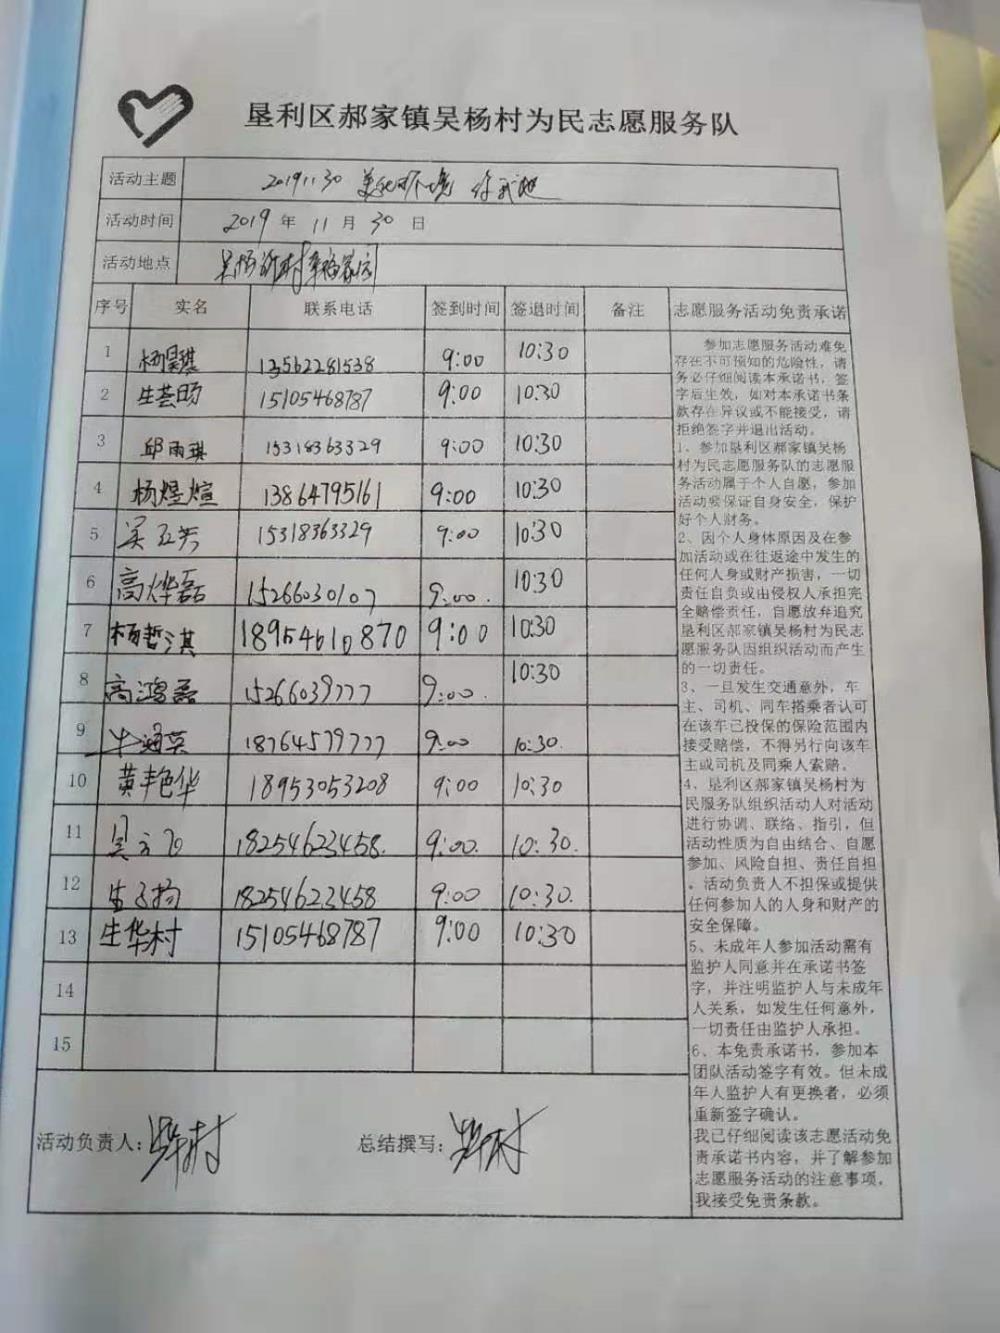 垦利区郝家镇吴杨村为民志愿服务队
活动主题 20191130 美化环境 你我他
活动时间 2019 年 11 月 30 日
活动地点 吴杨新村幸福家园
序号 实名 联系电话 签到时间 签退时间 备注
1 杨昊琪 13562281538 9:00 10:30
2 生荟旸 15105468787 9:00 10:30
3 邱雨琪 15318363329 9:00 10:30
4 杨煜煊 13864795161 9:00 10:30
5 吴五芳 15318363329 9:00 10:30
6 高烨磊 15266030107 9:00. 10:30
7 杨哲淇 18954610870 9:00 10:30
8 高鸿磊 15266039777 9:00. 10:30
9 18764579777 9:00 10:30.
10 黄丰艳华 18953053208 9:00 10:30
11 18254623458. 9:00. 10:30.
12 18254623458 9:00 10:30.
13 生华村 15105468787 9:00 10:30
14
15
活动负责人: 总结撰写:
志愿服务活动免责承诺
参加志愿服务活动难免
存在不可预知的危险性,请
务必仔细阅读本承诺书,签
字后生效,如对本承诺书条
款存在异议或不能接受,请
拒绝签字并退出活动。
1、参加垦利区郝家镇吴杨
村为民志愿服务队的志愿服
务活动属于个人自愿,参加
活动要保证自身安全,保护
好个人财务。
2、因个人身体原因及在参
加活动或在往返途中发生的
任何人身或财产损害,一切
责任自负或由侵权人承担完
全赔偿责任,自愿放弃追究
垦利区郝家镇吴杨村为民志
愿服务队因组织活动而产生
的一切责任。
3、一旦发生交通意外,车
主、司机、同车搭乘者认可
在该车已投保的保险范围内
接受赔偿,不得另行向该车
主或司机及同乘人索赔。
4、垦利区郝家镇吴杨村为
民服务队组织活动人对活动
进行协调、联络、指引,但
活动性质为自由结合、自愿
参加、风险自担、责任自担
。活动负责人不担保或提供
任何参加人的人身和财产的
安全保障。
5、未成年人参加活动需有
监护人同意并在承诺书签
字,并注明监护人与未成年
人关系,如发生任何意外,
一切责任由监护人承担。
6、本免责承诺书,参加本
团队活动签字有效。但未成
年人监护人有更换者,必须
重新签字确认。
我已仔细阅读该志愿活动免
责承诺书内容,并了解参加
志愿服务活动的注意事项,
我接受免责条款。